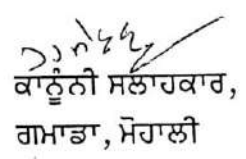 ਕਾਨੂੰਨੀ ਸਲਾਹਕਾਰ,
ਗਮਾਡਾ, ਮੋਹਾਲੀ